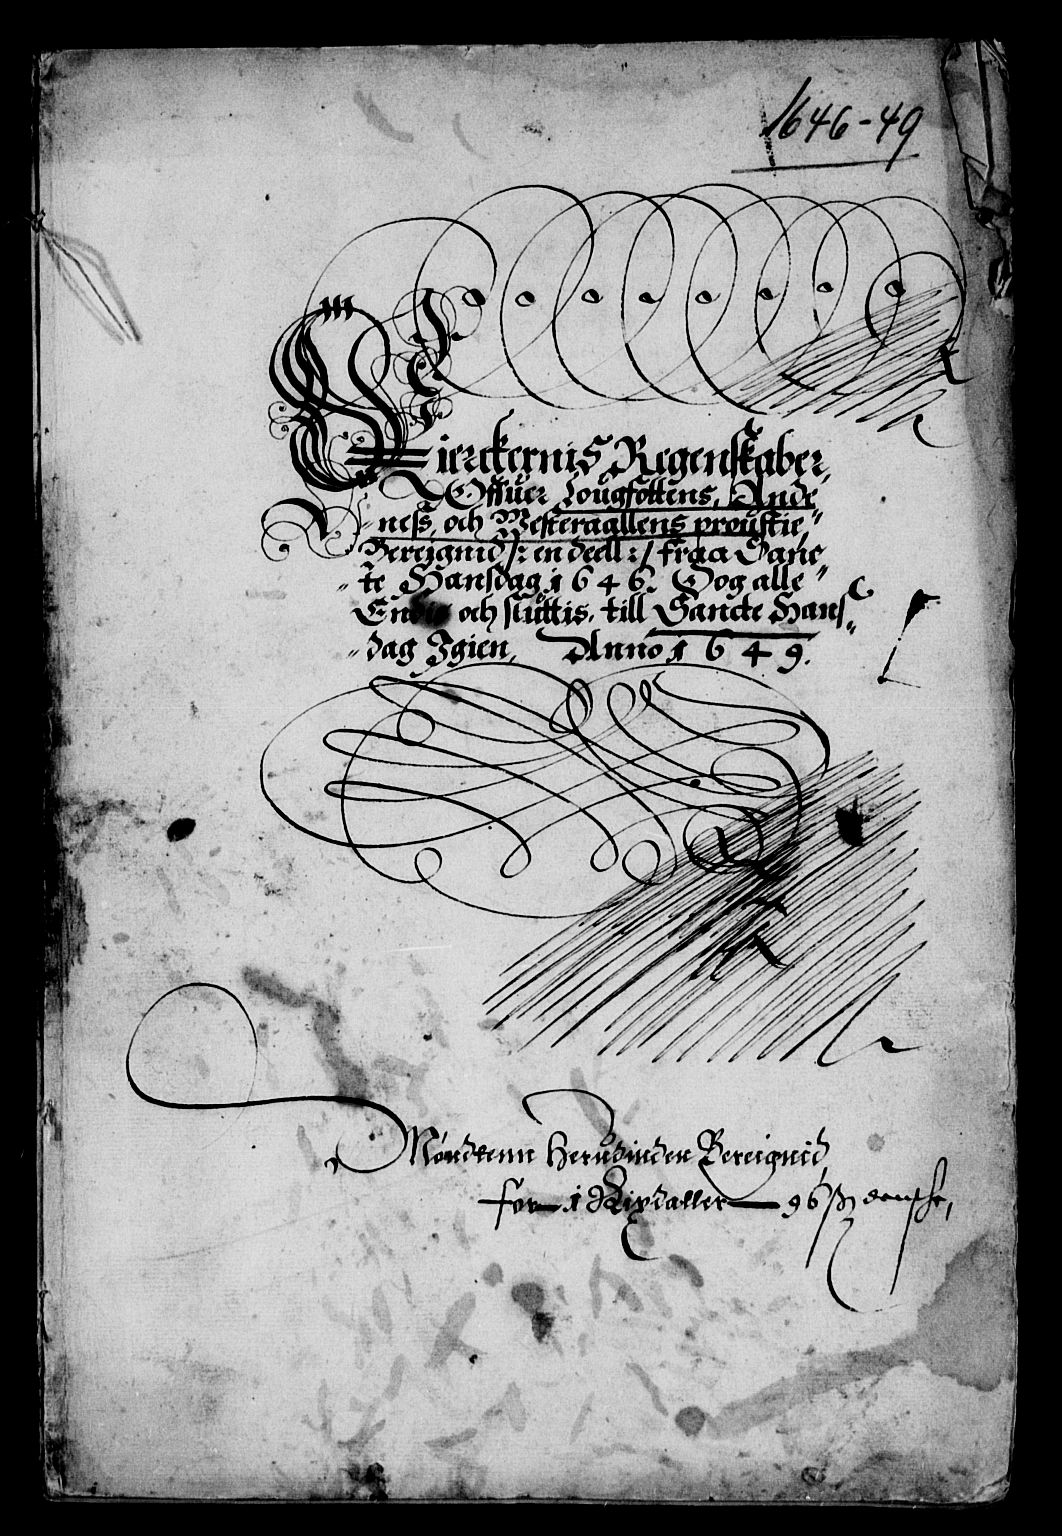 1646-49
Kierckernis Regenskaber,
Offuer Lougfottens, Ande
ness, och Westeraallens proustie,
Bereignid /: en deell :/ fraa Sanc
te Hansdag 1646. Oog alle
Endis och sluttis, till Sancte Hans
dag Igien, Anno 1649.
Møndtenn Herudinden Bereignid,
for 1 Rixdaller 96 ß danske,